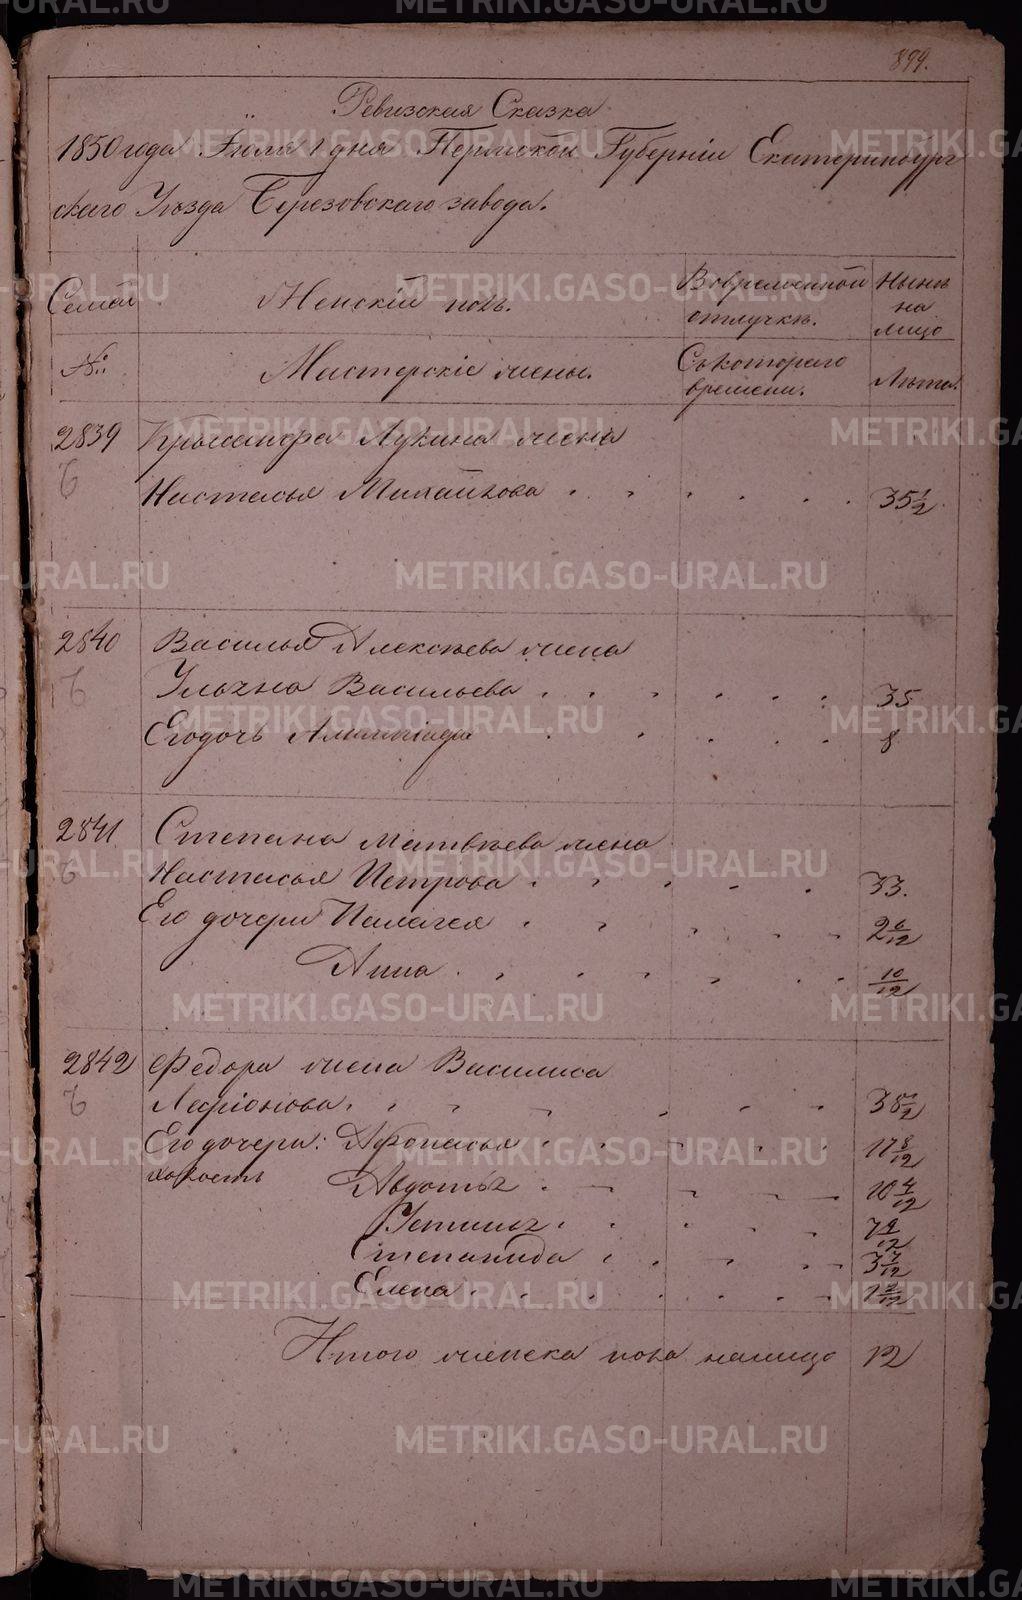 899.
Ревизская Сказка
1850 года Іюля 1 дня Пермской Губерніи Екатеринбург
скаго Уѣзда Березовскаго завода.
Семьи
Женскій полъ.
Вовременной отлучкѣ.
Нынѣ на лицо
№
Мастерскіе жены.
Съкотораго времени.
Лѣта.
2839 Лукина жена
Настасья Михайлова 35 1/2
2840 Василья Алексѣева жена
Ульяна Васильева 35
Егодочь Алимпіада 8
2841 Степана Матвѣева жена
Настасья Петрова 33.
Его дочери Палагея 2 6/12
Анна 10/12
2842 Федора жена Василиса
Ларіонова.
Его дочери: Афонасья 17 8/12
Авдотья 10 4/12
Устинья
Степанида
Елена
Итого женска пола налицо 12
METRIKI.GASO-URAL.RU